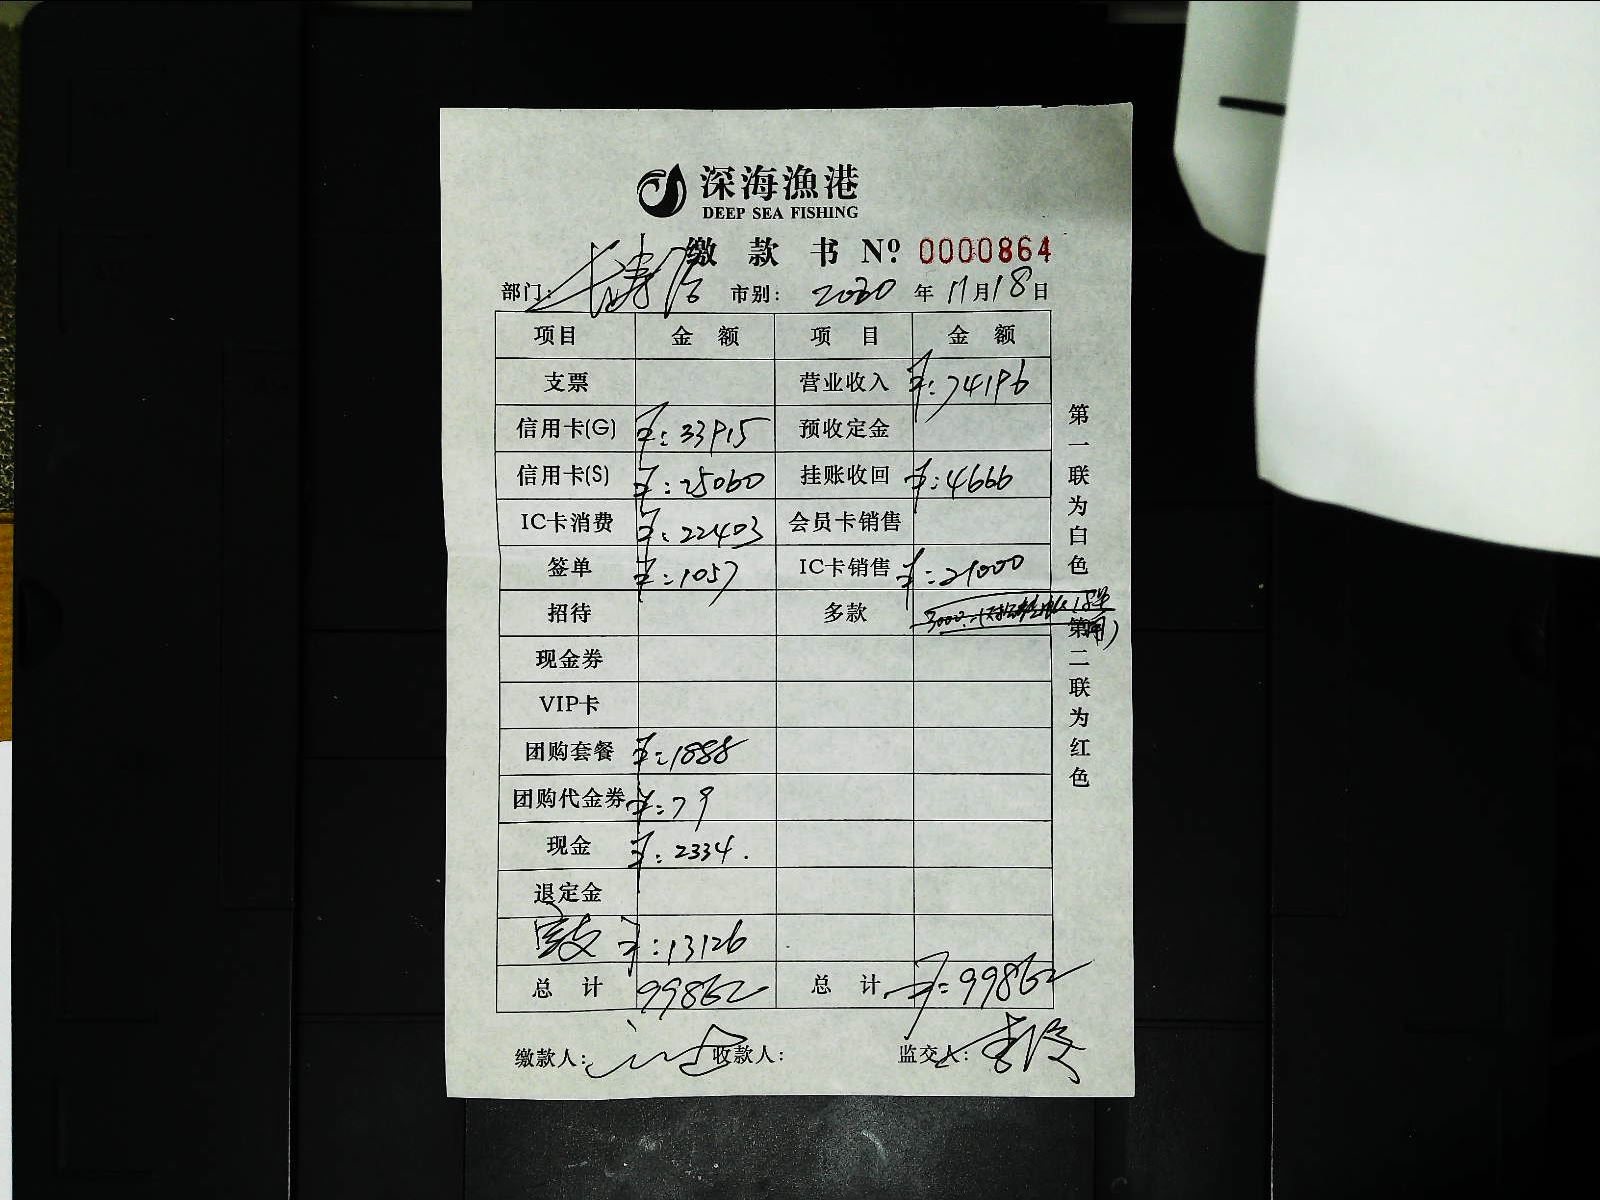 深海漁港
DEEP SEA FISHING
缴 款 书 Nº 0000864
部门: 市别: 2020 年 11月18日
项目 金 额 项 目 金 额
支票 营业收入 ¥:74196
信用卡(G) ¥:33915 预收定金
信用卡(S) ¥:25060 挂账收回 ¥:4666
IC卡消费 ¥:22403 会员卡销售
签单 ¥:1057 IC卡销售 ¥:21000
招待 多款
现金券
VIP卡
团购套餐 ¥:1888
团购代金券 ¥:79
现金 ¥:2334.
退定金
¥:13126
总 计 99862 总 计 ¥:99862
缴款人: 收款人: 监交人:
第一联为白色 第二联为红色